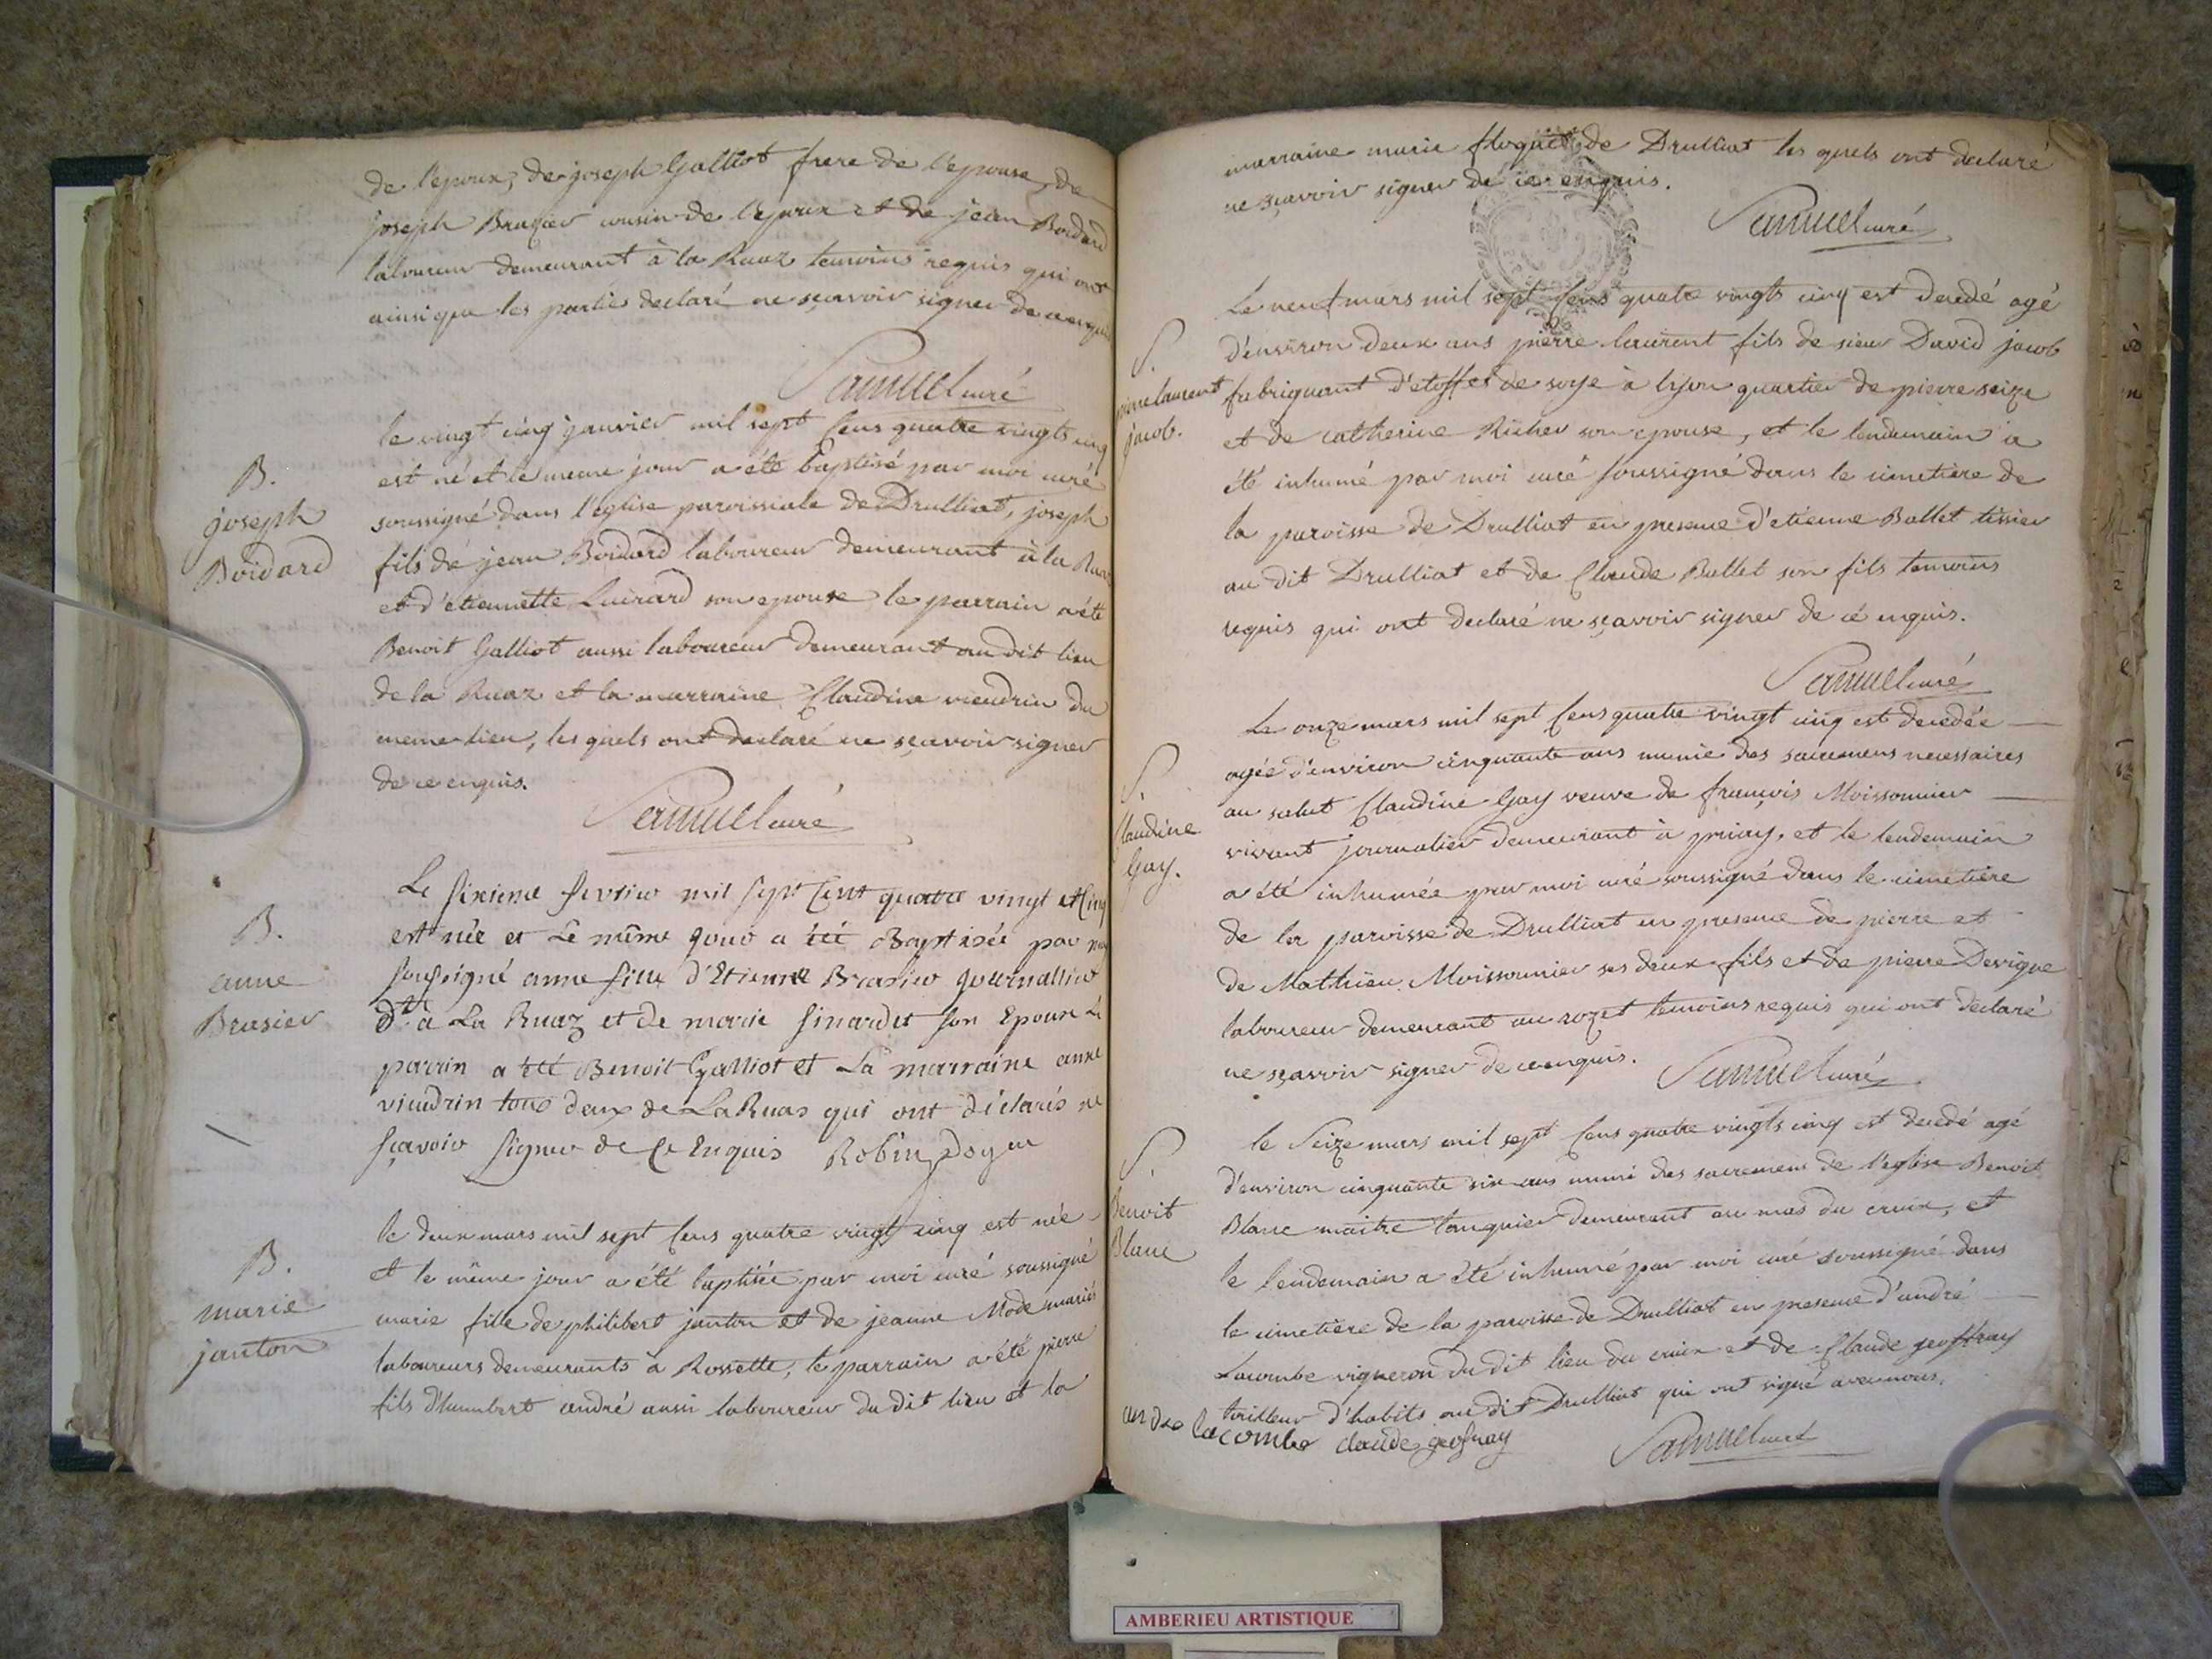 de l'epoux, de joseph Galliot frere de l'epouse, de
joseph Brazier cousin de l'epoux et de jean Boidard
laboureur demeurant à la Ruaz temoins requis qui ont
ainsi que les partie declaré ne sçavoir signer de ce enquis
Samuel curé
B.
joseph
Boidard
le vingt cinq janvier mil sept cens quatre vingts cinq
est né et le meme jour a été baptisé par moi curé
soussigné dans l'eglise paroissiale de Drulliat, joseph
fils de jean Boidard laboureur demeurant à la Ruaz
et d'etiennette Luirard son epouse le parrain a été
Benoit Galliot aussi laboureur demeurant au dit lieu
de la Ruaz et la marraine Claudine vieudrin du
meme lieu, les quels ont declaré ne sçavoir signer
de ce enquis.
Samuel curé
B.
anne
Brasier
Le sixieme fevrier mil sept cent quatre vingt et cinq
est née et Le même jour a été Baptisée par moy
soussigné anne fille d'Etienne Brasier journallier
dt a La Ruaz et de marie sinardet son Epouse Le
parrin a été Benoit Galliot et La marraine anne
vieudrin tous deux de La Ruas qui ont déclarés ne
sçavoir signer de Ce Enquis Robin Doyen
B.
marie
janton
le deux mars mil sept cens quatre vingt cinq est née
et le même jour a été baptisée par moi curé soussigné
marie fille de philibert janton et de jeanne Mode mariés
laboureurs demeurants à Rossette, le parrain a été pierre
fils d'humbert andré aussi laboureur du dit lieu et la
marraine marie floquet de Drulliat les quels ont declaré
ne sçavoir signer de ce enquis.
Samuel curé
S.
pierre laurent
jacob.
Le neuf mars mil sept cens quatre vingts cinq est decedé agé
d'environ deux ans pierre laurent fils de sieur David jacob
fabriquant d'etoffes de soye à lyon quartier de pierre seize
et de catherine Richer son epouse, et le lendemain a
été inhumé par moi curé soussigné dans le cimetiere de
la paroisse de Drulliat en presence d'etienne Ballet tissier
au dit Drulliat et de Claude Ballet son fils temoins
requis qui ont declaré ne sçavoir signer de cé enquis.
Samuel curé
S.
Claudine
Gay.
Le onze mars mil sept cens quatre vingt cinq est decedée
agée d'environ cinquante ans munie des sacremens necessaires
au salut Claudine Gay veuve de françois Moissonnier
vivant journalier demeurant à priay, et le lendemain
a été inhumée par moi curé soussigné dans le cimetière
de la paroisse de Drulliat en presence de pierre et
de Mathieu Moissonnier ses deux fils et de pierre Devigne
laboureur demeurant au rozet temoins requis qui ont declaré
ne sçavoir signer de ce enquis.
Samuel curé
S.
Benoit
Blanc
le Seize mars mil sept cens quatre vingts cinq est decedé agé
d'environ cinquante six ans muni des sacremens de l'eglise Benoit
Blanc maitre tanquier demeurant au mas du cruix, et
le lendemain a été inhumé par moi curé soussigné dans
le cimetière de la paroisse de Drulliat en presence d'andré
Lacombe vigneron du dit lieu du cruix et de Claude geoffray
tailleur d'habits au dit Drulliat qui ont signé avec nous.
andre lacombe claude geofray
Samuel curé
AMBERIEU ARTISTIQUE